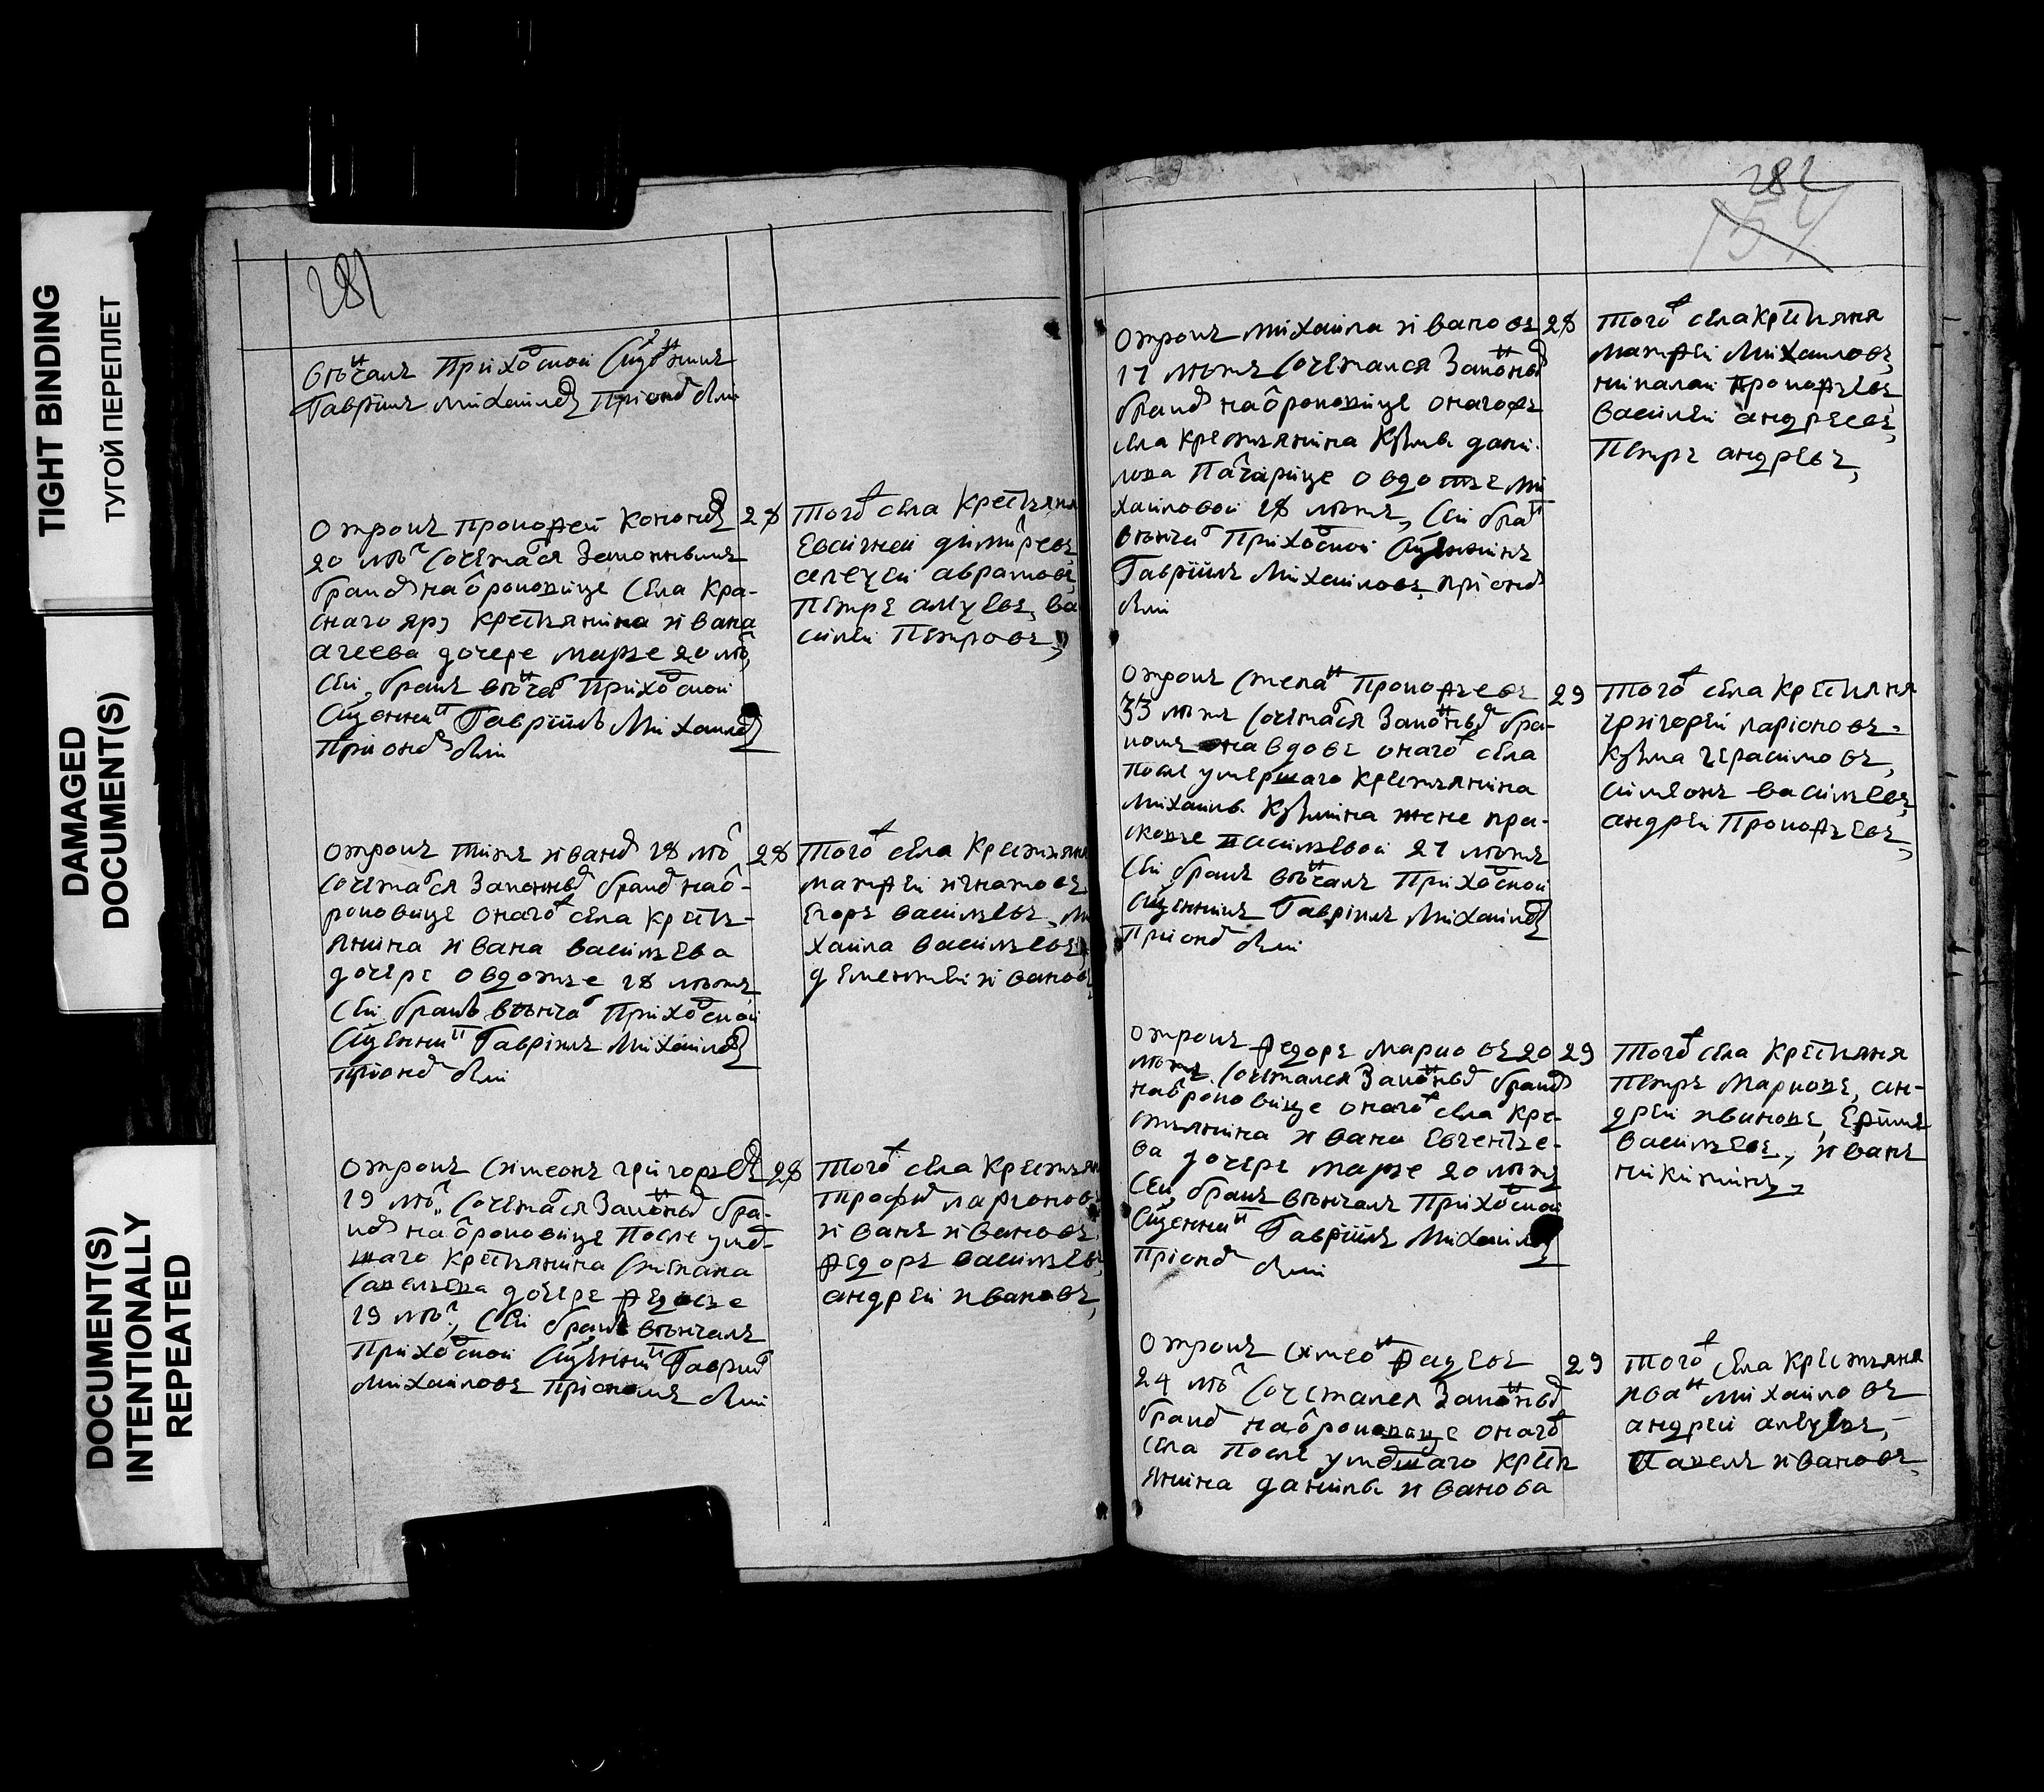 TIGHT BINDING
ТУГОЙ ПЕРЕПЛЕТ
DAMAGED
DOCUMENT(S)
DOCUMENT(S)
INTENTIONALLY
REPEATED
281
венчалъ Приходской Сщенникъ
Гаврiилъ Михаиловъ При оном были
Отрокъ Прокофей Кононовъ 28
20 летъ сочетался Законнымъ
браком на отроковице Села Кра-
снаго яру крестьянина Ивана
Агеева дочере Марье 20 летъ
сей бракъ венчал Приходской
Сщенникъ Гаврiилъ Михаиловъ
При оном были
Того села крестьяня
Евсигней димитревъ
алеѯей аврамовъ
Петръ алеѯевъ, ва
силей Петровъ,
Отрокъ Титъ Иванов 18 летъ 28
сочетался Законным браком на от-
роковице онаго села крестъ-
янина Ивана васильева
дочере овдотье 18 летъ
сей бракъ венчал Приходской
Сщенник Гаврiилъ Михаиловъ
При оном были
Того села Крестьяня
матѳей игнатовъ
Егоръ васильевъ, ми
хаила васильевъ,
дементей Иванов
Отрокъ Симеонъ григорьев 28
19 летъ, сочетался Законным бра-
ком на отроковице После умер-
шаго крестьянина Степана
савельева дочере Ѳедосье
19 летъ, сей бракъ венчалъ
Приходской Сщенник Гаврил
Михаиловъ При ономъ были
Того села Крестьян
Трофим ларионов
Иванъ Ивановъ
Ѳедоръ васильевъ,
андрей Ивановъ,
282
154
Отрокъ михаила Ивановъ 28
17 летъ сочетался Законным
браком на отроковице онагожъ
села крестьянина Кузмы дани-
лова Падчарице овдотье ми
хаиловой 18 летъ, сей брак
венчал Приходской Сщенникъ
Гаврiилъ Михаиловъ, при оном
были
Того села крестьяня
матѳей Михаиловъ,
николай Прокоѳьевъ
василей андреевъ,
Петръ андревъ,
Отрокъ Степан Прокоѳьевъ 29
33 летъ сочетался Законным бра-
комъ на вдове онаго села
После умершаго крестьянина
Михаилы Кузмина жене пра-
сковье васильевой 27 летъ
сей бракъ венчалъ Приходской
Сщенникъ Гаврiилъ Михаиловъ
При оном были
Того села крестьяня
григорей ларiоновъ.
Кузма герасимовъ,
симеонъ васильевъ,
андрей Прокоѳьевъ,
Отрокъ Ѳедоръ марковъ 20 29
летъ сочетался Законным браком
на отроковице онаго села кре-
стьянина Ивана Евгентье-
ва дочере марье 20 летъ
сей бракъ венчалъ Приходской
Сщенник Гаврiилъ Михаилов
При оном были
Того села крестьяня
Петръ марковъ, ан-
дрей Ивановъ, Ефимъ
васильевъ, Иванъ
никитинъ,
Отрокъ симеон Ѳадѣевъ 29
24 летъ сочетался Законным
браком на отроковице онаго
села После умершаго крестъ
янина данилы Иванова
Того села крестьяня
Иван михаиловъ
андрей алеѯевъ,
Павелъ Ивановъ,